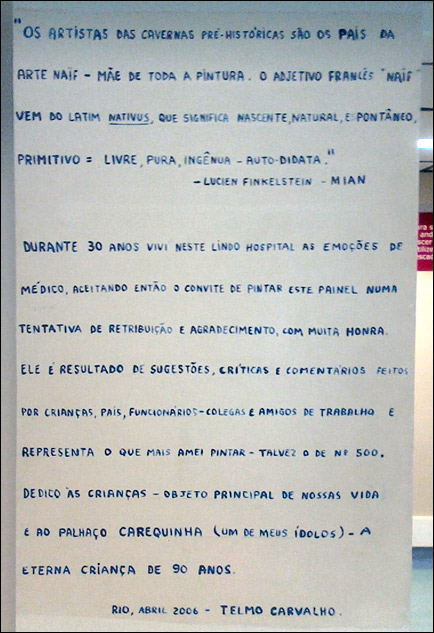 "OS ARTISTAS DAS CAVERNAS PRÉ-HISTÓRICAS SÃO OS PAÍS DA
ARTE NAÏF - MÃE DE TODA A PINTURA. O ADJETIVO FRANCÊS "NAÏF"
VEM DO LATIM NATIVUS, QUE SIGNIFICA NASCENTE, NATURAL, ESPONTÂNEO,
PRIMITIVO = LIVRE, PURA, INGÊNUA - AUTO-DIDATA."
- LUCIEN FINKELSTEIN - MIAN
DURANTE 30 ANOS VIVI NESTE LINDO HOSPITAL AS EMOÇÕES DE
MÉDICO, ACEITANDO ENTÃO O CONVITE DE PINTAR ESTE PAINEL NUMA
TENTATIVA DE RETRIBUIÇÃO E AGRADECIMENTO, COM MUITA HONRA.
ELE É RESULTADO DE SUGESTÕES, CRÍTICAS E COMENTÁRIOS FEITOS
POR CRIANÇAS, PAÍS, FUNCIONÁRIOS-COLEGAS E AMIGOS DE TRABALHO E
REPRESENTA O QUE MAIS AMEI PINTAR - TALVEZ O DE Nº 500.
DEDICO ÀS CRIANÇAS - OBJETO PRINCIPAL DE NOSSAS VIDA
E AO PALHAÇO CAREQUINHA (UM DE MEUS ÍDOLOS) - A
ETERNA CRIANÇA DE 90 ANOS.
RIO, ABRIL 2006 - TELMO CARVALHO.